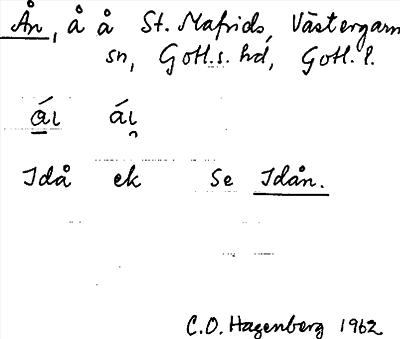 Ån, å å St. Mafrids, Västergarn
sn, Gotl. s. hd, Gotl. l.
ái ái̯
Idå ek se Idån.
C.O. Hagenberg 1962